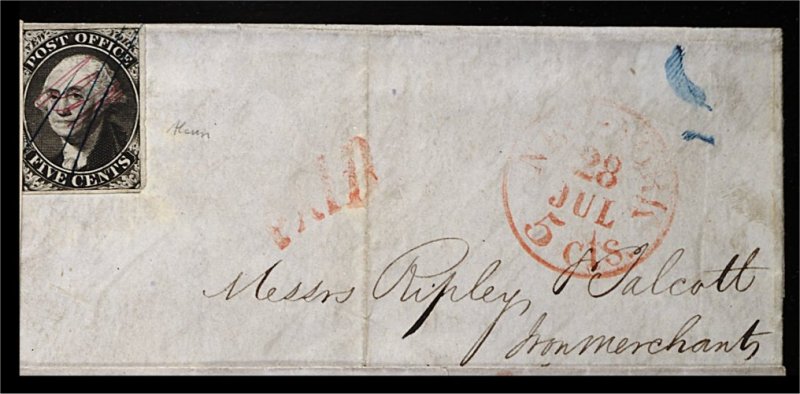 POST OFFICE
FIVE CENTS
PAID
NEW-YORK
28
JUL
5 cts.
Messrs Ripley & Talcott
Iron Merchants